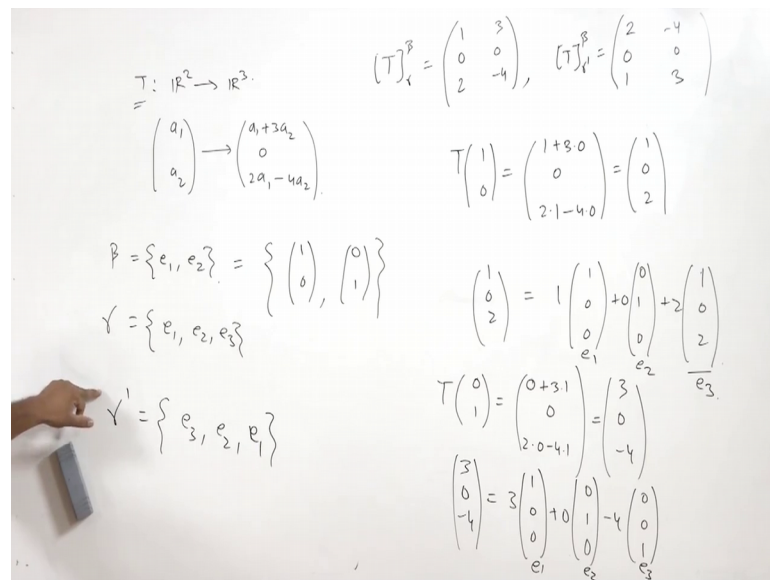 T: ℝ² → ℝ³.
(a₁ ; a₂) → (a₁+3a₂ ; 0 ; 2a₁−4a₂)
β = {e₁, e₂} = {(1 ; 0), (0 ; 1)}
γ = {e₁, e₂, e₃}
γ' = {e₃, e₂, e₁}
[T]ᵞ^β = (1 3 ; 0 0 ; 2 −4), [T]ᵞ'^β = (2 −4 ; 0 0 ; 1 3)
T(1 ; 0) = (1+3·0 ; 0 ; 2·1−4·0) = (1 ; 0 ; 2)
(1 ; 0 ; 2) = 1(1 ; 0 ; 0) + 0(0 ; 1 ; 0) + 2(1 ; 0 ; 2)
e₁ e₂ e₃.
T(0 ; 1) = (0+3·1 ; 0 ; 2·0−4·1) = (3 ; 0 ; −4)
(3 ; 0 ; −4) = 3(1 ; 0 ; 0) + 0(0 ; 1 ; 0) −4(0 ; 0 ; 1)
e₁ e₂ e₃